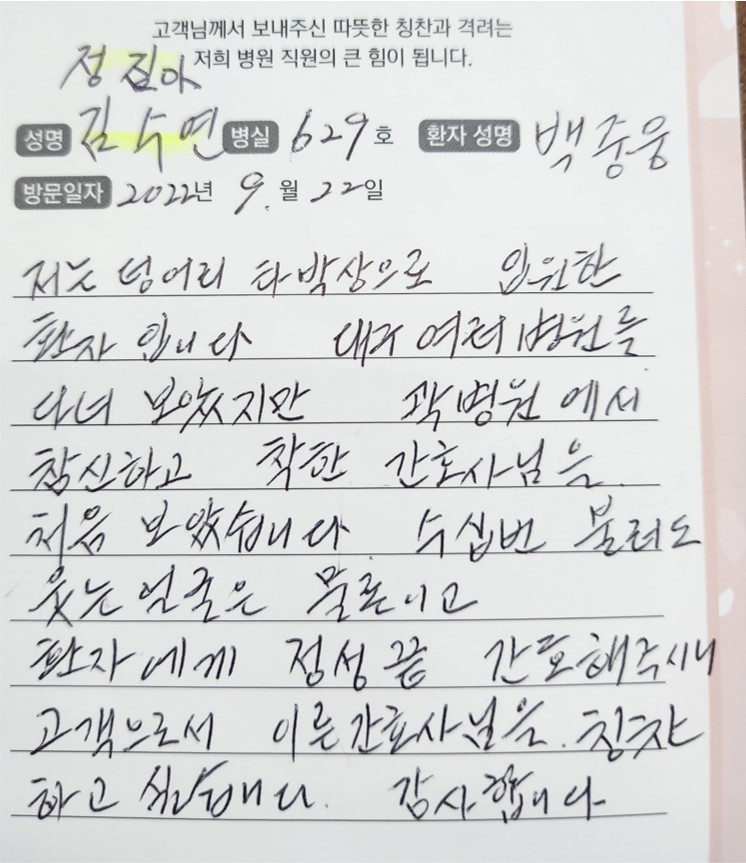 고객님께서 보내주신 따뜻한 칭찬과 격려는
저희 병원 직원의 큰 힘이 됩니다.
정진아
성명 김수연 병실 629호 환자 성명 백종웅
방문일자 2022년 9.월 22일
저는 엉어리 타박상으로 입원한
환자 입니다 대구 여러 병원를
다녀 보았지만 곽병원 에서
참신하고 착한 간호사님 은.
처음 보았습니다. 수십번 불려도
웃는 얼굴은 물론이고
환자에게 정성 끝 간호해주시니
고객으로서 이른간호사님을. 칭찬
하고 싶습니다. 감사합니다